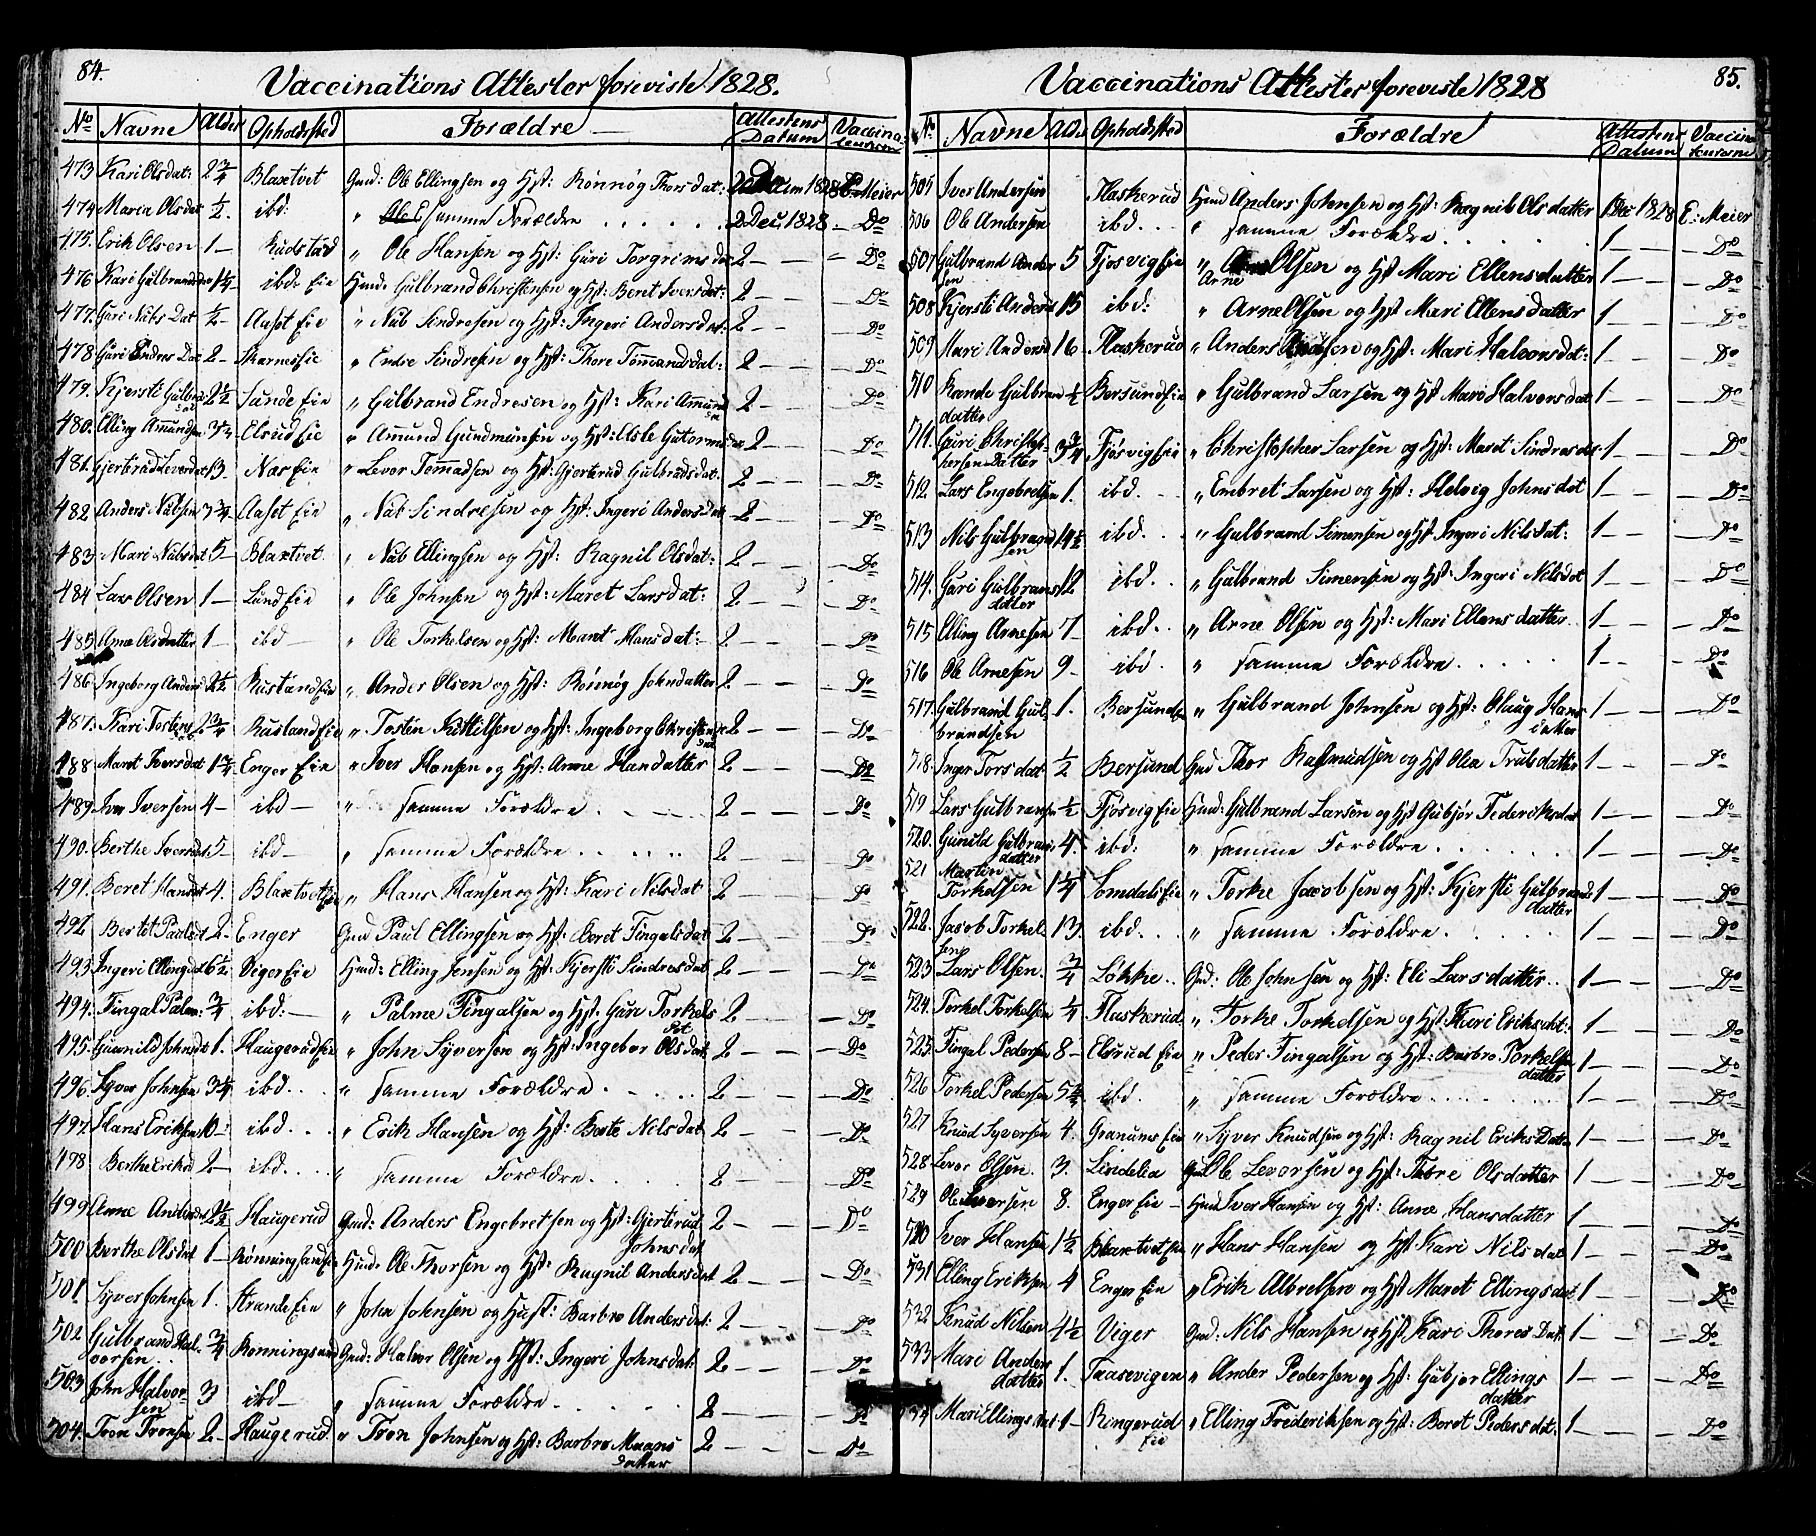 84.
Vaccinations Attester foreviste 1828.
No Navne Alder Opholdsted Forældre Attestens Datum Vaccinateurerne
473 Kari Olsdat: 2 3/4 Blaxtvet Gmd: Ole Ellingsen og Hst: Rönnög Thorsdat: 1828 E. Meier
474 Maria Olsdat 1/2. ibd: " samme Forældre . . . . . 2 Dec. 1828 — Do
475. Erik Olsen 1 — Rudstad " Ole Hansen og Hst: Guri Torgrimsdat 2 — — — Do
476 Kari Gulbrandsdat 1 1/4 ibds Eie Huusd: Gulbrand Christensen og Hst: Beret Iversdat: 2 — — — Do
477. Guri Nubs Dat 1/2 — Aaset Eie " Nub Sindresen og Hst: Ingeri Andersdat: 2 — — — Do
478 Guri Endres Dat 2 — Skarnes Eie " Endre Sindresen og Hst: Thore Tommasdat: 2 — — — Do
479. Kjersti Gulbrandsdat 2 1/2 Sunde Eie " Gulbrand Endresen og Hst: Kari Amunds 2 — — — Do
480. Elling Amundsen 3 1/4 Elsrud Eie " Amund Gundmunsen og Hst: Asle Gutormsdat 2 — — — Do
481. Gjertrud Levordat 3 — Nas Eie " Levor Tommadsen og Hst: Gjertrud Gulbrandsdat: 2 — — — Do
482 Anders Nubsen 3 3/4 Aaset Eie " Nub Sindresen og Hst: Ingeri Andersdat 2 — — — Do
483 Mari Nubsdat 5 — Blaxtvet " Nub Ellingsen og Hst: Ragnil Olsdat: 2 — — — Do
484 Lars Olsen 1 — Lund Eie " Ole Johnsen og Hst: Maret Larsdat: 2 — — — Do
485 Anne Olsdatter 1 — ibd — " Ole Torkelsen og Hst: Maret Hansdat: 2 — — — Do
486 Ingeborg Anders 2 1/2 Rustand Eie " Ander Olsen og Hst: Rönnög Johndatter 2 — — — Do
487. Kari Tostens dat 2 3/4 Rusland Eie " Tosten Kittilsen og Hst: Ingeborg Christensdat 2 — — — Do
488 Maret Iversdat 1 3/4 Enger Eie " Iver Hansen og Hst: Anne Handatter 2 — — — Do
489. Iver Iversen 4 — ibd — " samme Forældre . . . . 2 — — — Do
490. Berthe Iversdat 5 ibd — " samme Forældre . . . . . 2 — — — Do
491. Beret Hansdat 4. Blaxtvet Eie " Hans Hansen og Hst: Kari Nilsdat 2 — — — Do
492 Bertet Paulsd 2. Enger Gmd Paul Ellingsen og Hst: Beret Fingalsdat 2 — — — Do
493. Ingeri Ellingsdat 6 1/2 Viger Eie Huusd: Elling Jensen og Hst: Kjersti Sindresdat 2 — — — Do
494. Fingal Palm: 3/4 ibd: — " Palme Fingalsen og Hst: Guri Torkelsdat 2 — — — Do
495. Gunnild Johnsdt 1. Haugerud Eie " John Syversen og Hst: Ingebor Olsdat 2 — — — Do
496. Syver Johnsen 3 1/4 ibd. . . " samme Forældre . . . . . 2 — — — Do
497. Hans Eriksen 10 — ibd . . . " Erik Hansen og Hst: Berte Nilsdat 2 — — — Do
498 Berthe Eriksd 2 — ibd. . . . " samme Forældre . . . . . 2 — — — Do
499 Anne Andersdat 2 1/2 Haugerud Gmd: Anders Engebretsen og Hst: Gjertrud Johnsdat 2 — — — Do
500 Berthe Olsdat 1 — Rönningsand Eie Huusd: Ole Thorsen og Hst: Ragnil Andersdat 2 — — — Do
501. Syver Johnsen 1. Strande Eie " John Johnsen og Hust: Barbro Andersdat: 2 — — — Do
502 Gulbrand Halvorsen . . 3/4 Rönningsand Gmd: Halvor Olsen og Hst: Ingeri Johnsdat: 2 — — — Do
503 John Halvorsen 3 ibd — " samme Forældre . . . . . 2 — — — Do
504. Tron Tronsen 2 — Haugerud " Tron Johnsen og Hst: Barbro Maans datter 2 — — — Do
85.
Vaccinations Attester foreviste 1828
No Navne Alder Opholdsted Forældre Attestens Datum Vaccinateurerne
505 Iver Andersen Flaskerud Huusd Anders Johnsen og Hst: Ragnil Olsdatter 1 Dec 1828 E. Meier
506 Ole Andersen ibd. . . " samme Forældre . . . . . 1 — — — Do
507 Gulbrand Andersen 5 Tjosvig Eie " Arne Olsen og Hst Mari Ellensdatter 1 — — — Do
508 Kjersti Andersd 15 ibd: " Arne Olsen og Hst Mari Ellensdatter 1 — — — Do
509 Mari Andersd 16 Flaskerud " Anders Knudsen og Hst: Mari Halvorsdat: 1 — — — Do
510 Rande Gulbrandsdatter 1/2 Bersund Eie " Gulbrand Larsen og Hst Mari Halvorsdat 1 — — — Do
511. Guri Christophersen Datter 3 3/4 Tjösvig Eie " Christopher Larsen og Hst: Maret Sindresdt 1 — — — Do
512. Lars Engebretsen 1. ibd. . . " Embret Larsen og Hst: Helvig Johnsdat 1 — — — Do
513 Nils Gulbrandsen 14 1/2 ibd. . . " Gulbrand Simensen og Hst Ingeri Nilsdat: 1 — — — Do
514. Guri Gulbransdatter 12 ibd. . " Gulbrand Simensen og Hst: Ingeri Nilsdat 1 — — — Do
515 Elling Arnesen 7 — ibd. . " Arne Olsen og Hst: Mari Ellensdatter. 1 — — — Do
516 Ole Arnesen 9 — ibd. " samme Forældre . . . . . 1 — — — Do
517. Gulbrand Gulbrandsen 1. Bersund Eie " Gulbrand Johnsen og Hst: Olaug Hans datter 1 — — — Do
518. Inger Torsdat 1/2 Bersund Gmd Thor Rasmudsen og Hst Olea Trulsdatter 1 — — — Do
519 Lars Gulbransen 1/2 Tjösvig Eie Huusd: Gulbrand Larsen og Hst Gubjör Federiksdat 1 — — — Do
520. Gunild Gulbransdatter 4. ibd: " samme Forældre . . . . . . 1 — — — Do
521 Martin Torkelsen 1 1/4 Lomdals Eie " Torke Jacobsen og Hst: Kjersti Gulbrands datter 1 — — — Do
522. Jacob Torkelsen 13. ibd. . . " samme Forældre . . . . . 1 — — — Do
523 Lars Olsen. 3/4 Lökke . . Gmd: Ole Johnsen og Hst: Eli Larsdatter . . 1 — — — Do
524. Torkel Torkelsen 1/4 Flaskerud " Torke Torkelsen og Hst Kari Eriksdat: 1 — — — Do
525. Fingal Pedersen 8 — Elsrud Eie " Peder Fingalsen og Hst: Barbro Torkelsen datter 1 — — — Do
526 Torkel Pedersen 5 3/4 ibd. " samme Forældre . . . . . 1 — — — Do
527 Knud Syversen 4. Granums Eie " Syver Knudsen og Hst: Ragnil Eriks Dat: 1 — — — Do
528 Levor Olsen. 3. Lindelia Gmd Ole Levorsen og Hst: Thore Olsdatter 1 — — — Do
529 Ole Iversen 8. Enger Eie — Huusd Iver Hansen og Hst: Anne Hansdatter 1 — — — Do
530 Iver Hansen 1 1/2 Blaxtvet Eie " Hans Hansen og Hst Kari Nilsdat 1 — — — Do
531 Elling Eriksen 4 Enger Eie " Erik og Hst Maret Ellingsdat: 1 — — — Do
532 Knud Nilsen 4 1/2 Viger Gmd: Nils Hansen og Hst Kari Thores Dat. 1 — — — Do
533 Mari Andersdatter 1. Taasevigen " Ander Pedersen og Hst: Gubjor Ellings datter 1 — — — Do
34 Mari Ellingsdat 1 — Ringerud Eie " Elling Frederiksen og Hst: Beret Pedersdat: 1 — — — Do